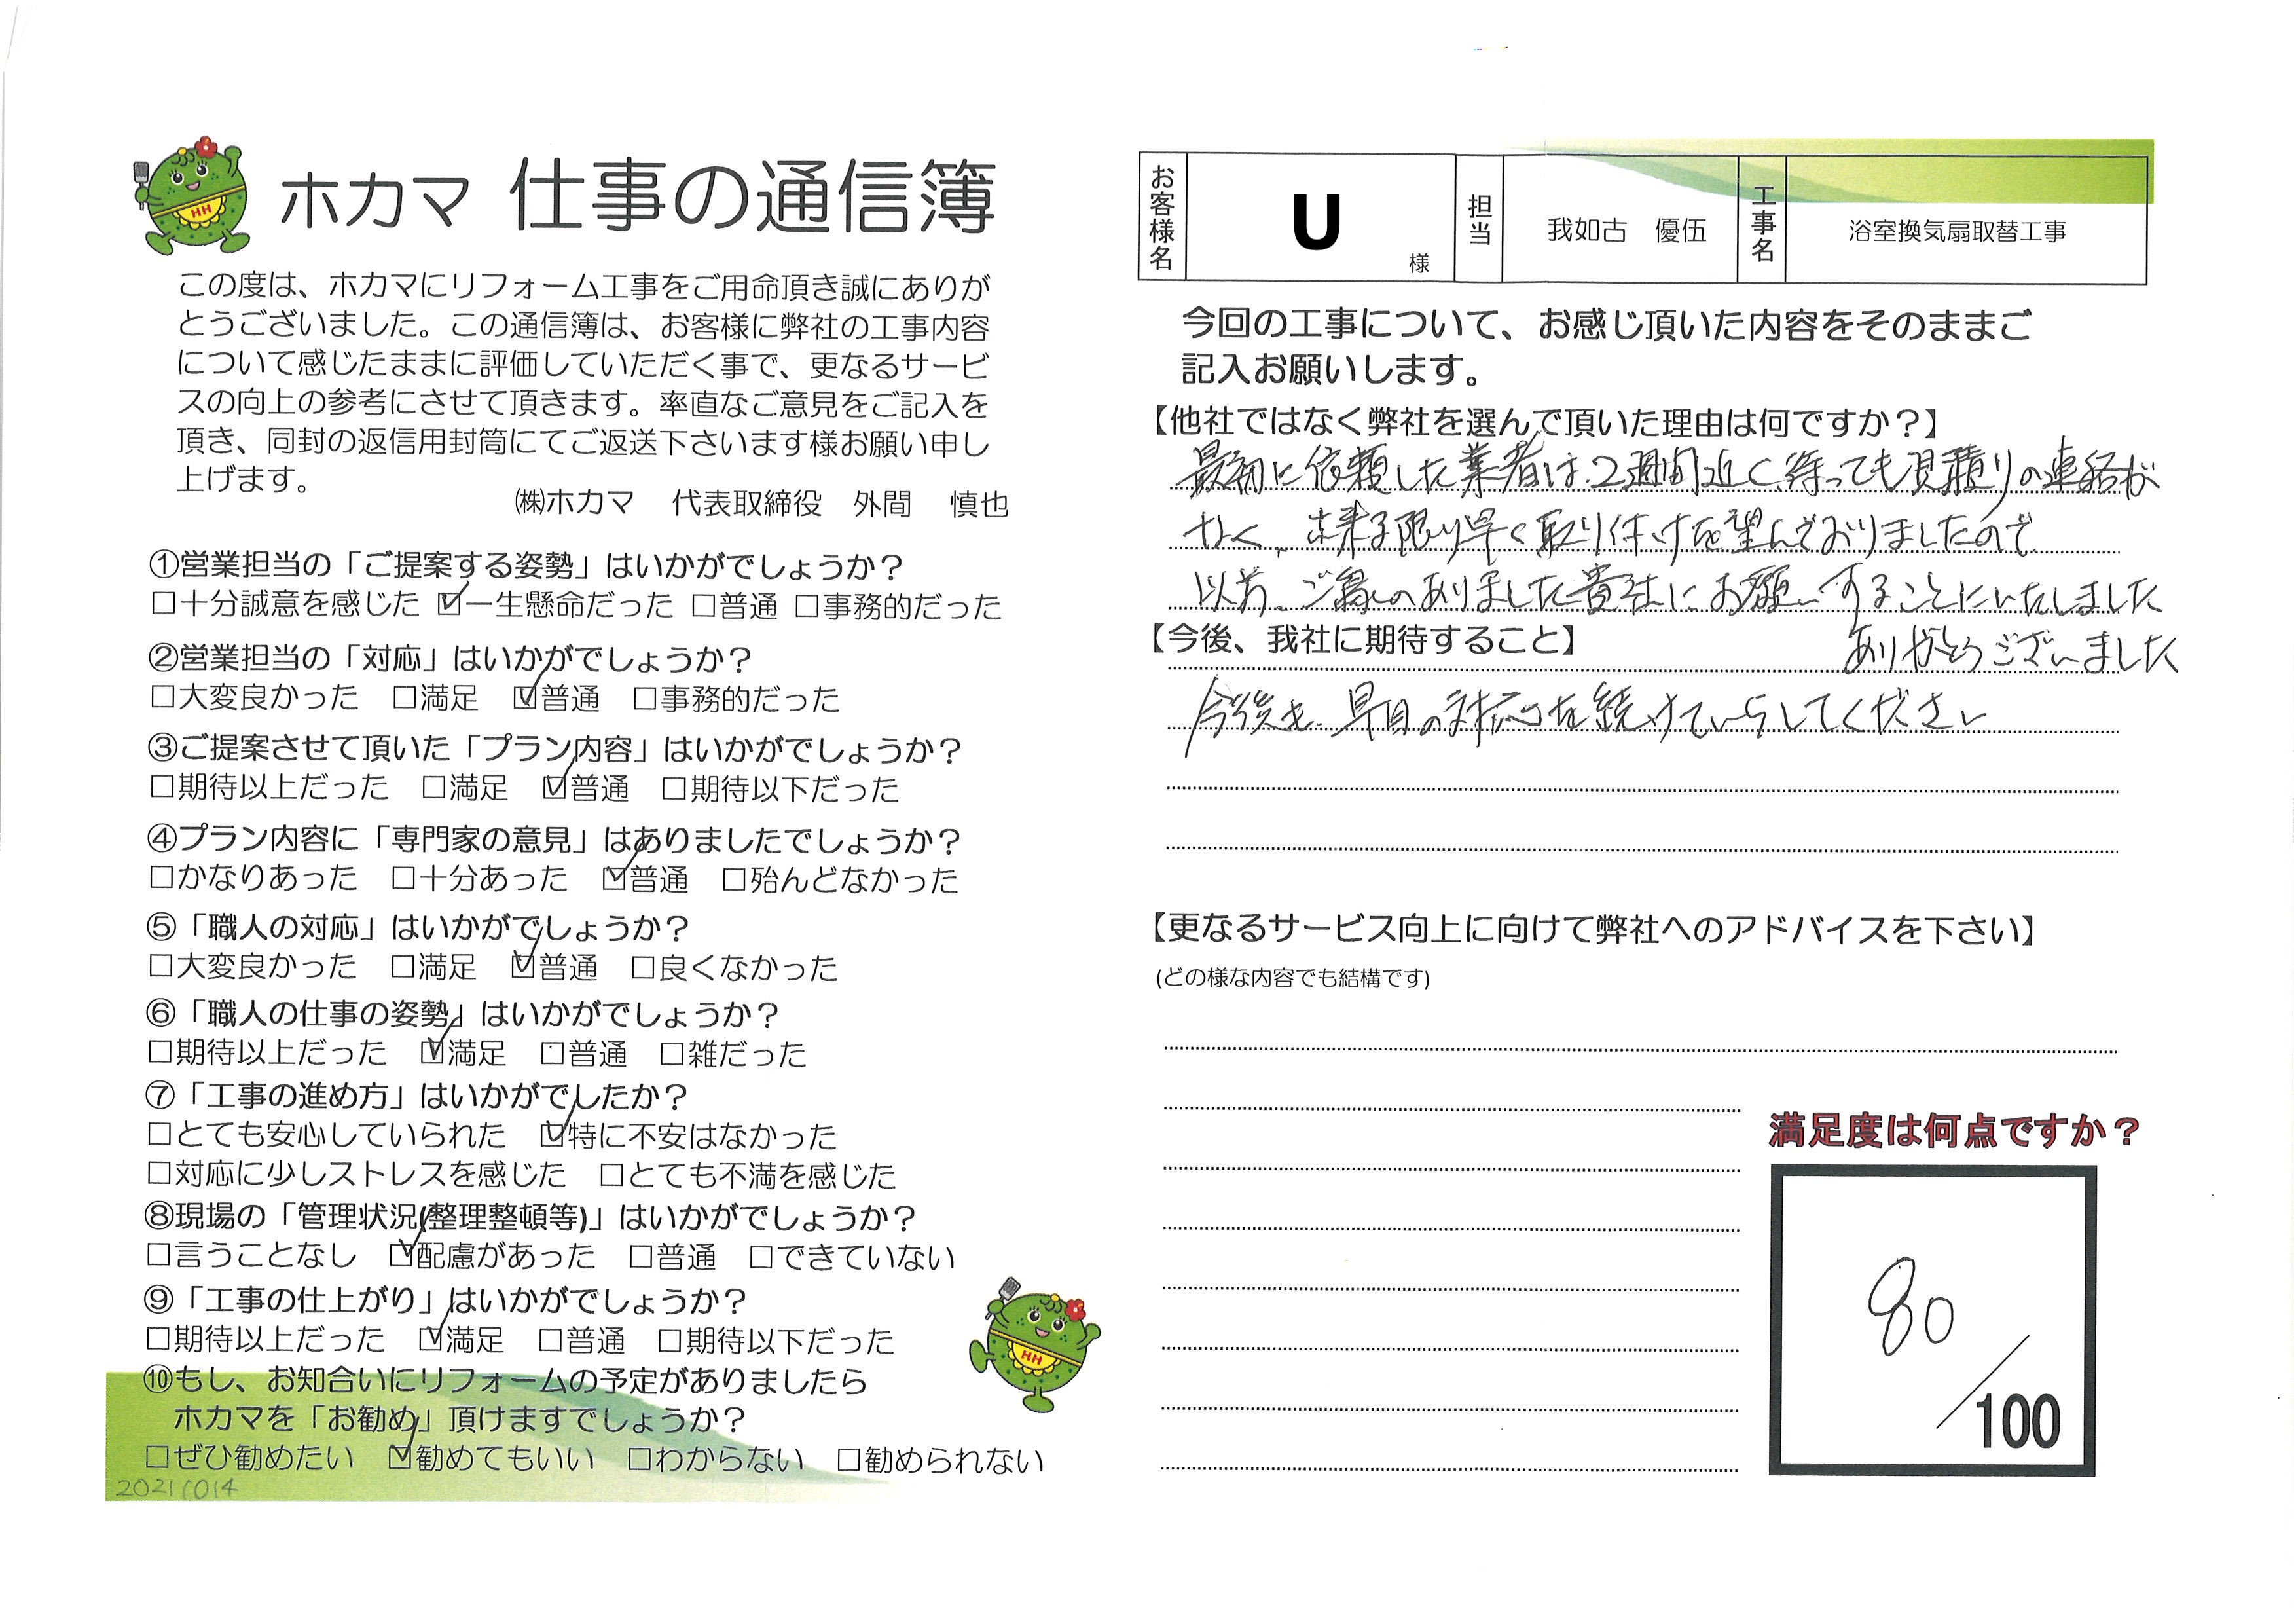 ホカマ 仕事の通信簿
この度は、ホカマにリフォーム工事をご用命頂き誠にありが
とうございました。この通信簿は、お客様に弊社の工事内容
について感じたままに評価していただく事で、更なるサービ
スの向上の参考にさせて頂きます。率直なご意見をご記入を
頂き、同封の返信用封筒にてご返送下さいます様お願い申し
上げます。
㈱ホカマ 代表取締役 外間 慎也
①営業担当の「ご提案する姿勢」はいかがでしょうか？
□十分誠意を感じた ☑一生懸命だった □普通 □事務的だった
②営業担当の「対応」はいかがでしょうか？
□大変良かった □満足 ☑普通 □事務的だった
③ご提案させて頂いた「プラン内容」はいかがでしょうか？
□期待以上だった □満足 ☑普通 □期待以下だった
④プラン内容に「専門家の意見」はありましたでしょうか？
□かなりあった □十分あった ☑普通 □殆んどなかった
⑤「職人の対応」はいかがでしょうか？
□大変良かった □満足 ☑普通 □良くなかった
⑥「職人の仕事の姿勢」はいかがでしょうか？
□期待以上だった ☑満足 □普通 □雑だった
⑦「工事の進め方」はいかがでしたか？
□とても安心していられた ☑特に不安はなかった
□対応に少しストレスを感じた □とても不満を感じた
⑧現場の「管理状況(整理整頓等)」はいかがでしょうか？
□言うことなし ☑配慮があった □普通 □できていない
⑨「工事の仕上がり」はいかがでしょうか？
□期待以上だった ☑満足 □普通 □期待以下だった
⑩もし、お知合いにリフォームの予定がありましたら
ホカマを「お勧め」頂けますでしょうか？
□ぜひ勧めたい ☑勧めてもいい □わからない □勧められない
20211014
お客様名 U 様 担当 我如古 優伍 工事名 浴室換気扇取替工事
今回の工事について、お感じ頂いた内容をそのままご
記入お願いします。
【他社ではなく弊社を選んで頂いた理由は何ですか？】
最初に依頼した業者は、2週間近く待っても見積りの連絡が
なく、出来る限り早く取り付けを望んでおりましたので
以前、ご縁のありました貴社にお願いすることにいたしました
ありがとうございました
【今後、我社に期待すること】
今後も早目の対応を続けていらしてください
【更なるサービス向上に向けて弊社へのアドバイスを下さい】
(どの様な内容でも結構です)
満足度は何点ですか？
80／100
HH
HH